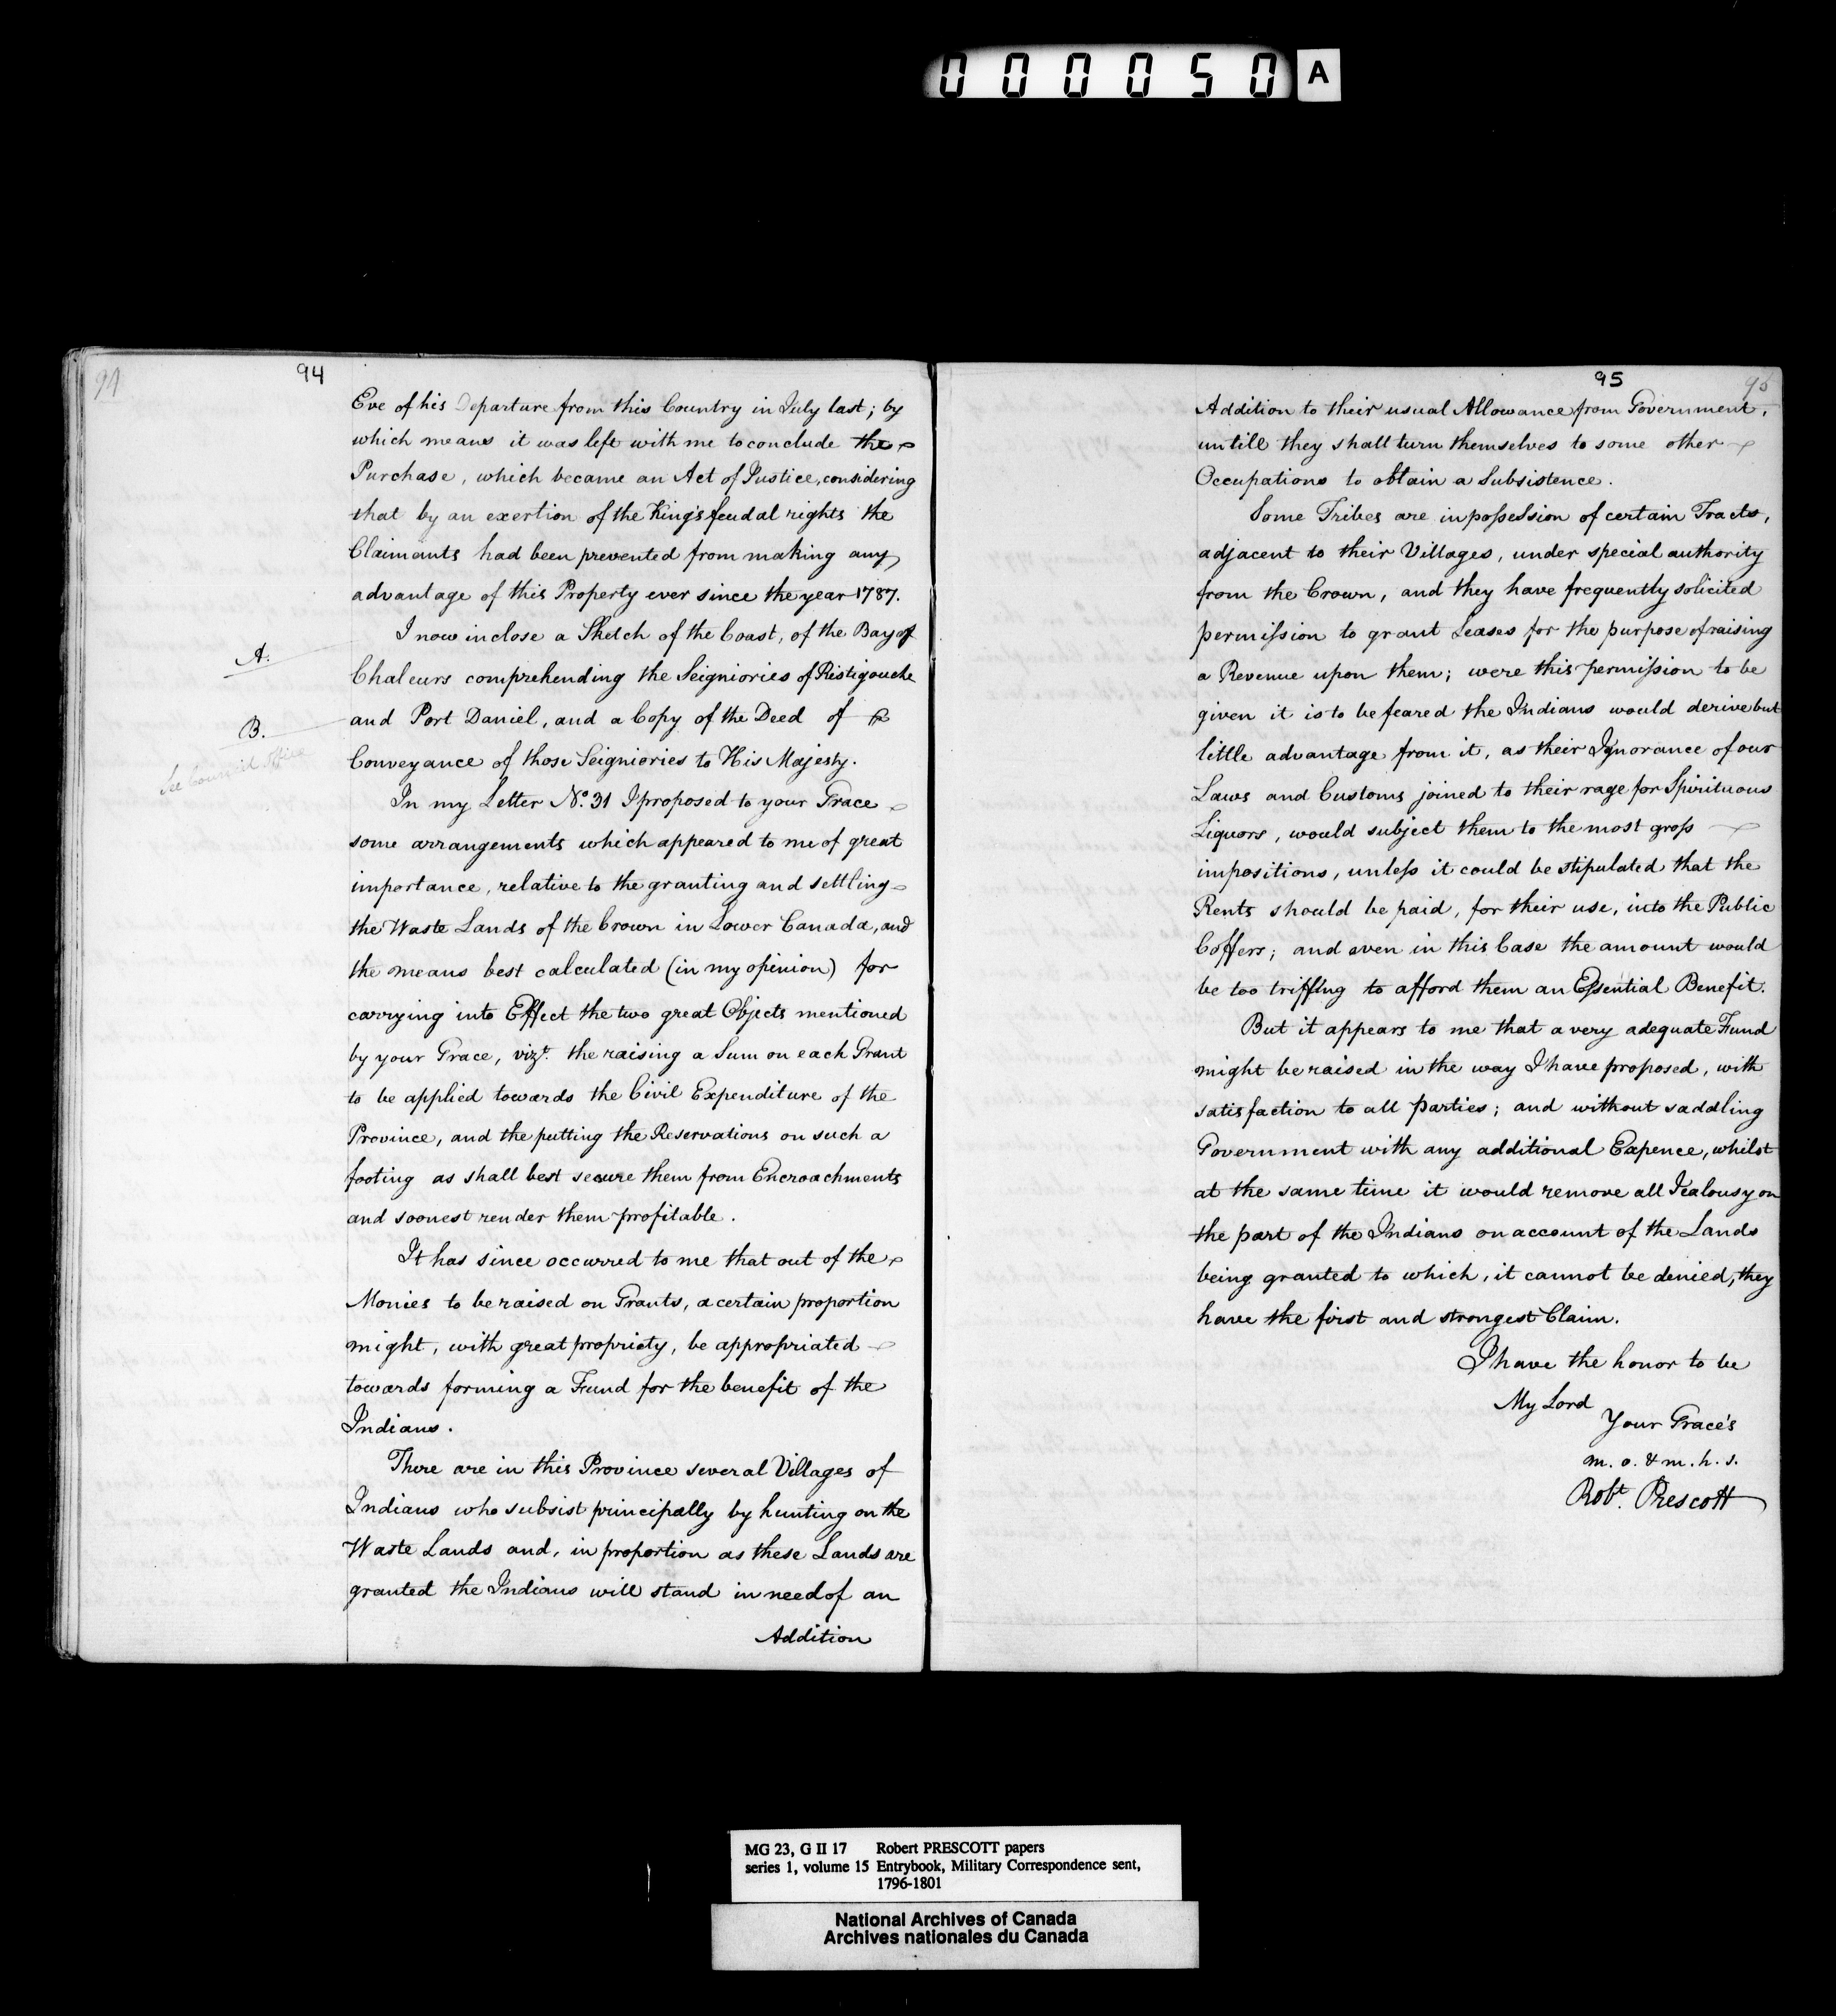 000050 A
94
94
Eve of his Departure from this Country in July last; by
which means it was left with me to conclude the
Purchase, which became an Act of Justice, considering
that by an exertion of the King's feudal rights the
Claimants had been prevented from making any
advantage of this Property ever since the year 1787.
A.
I now inclose a Sketch of the Coast, of the Bay of
Chaleurs comprehending the Seigniories of Ristigouche
B.
and Port Daniel, and a Copy of the Deed of
See Council Office
Conveyance of those Seigniories to His Majesty.
In my Letter No. 31 I proposed to your Grace
some arrangements which appeared to me of great
importance, relative to the granting and settling
the Waste Lands of the Crown in Lower Canada, and
the means best calculated (in my opinion) for
carrying into Effect the two great Objects mentioned
by your Grace, vizt. the raising a Sum on each Grant
to be applied towards the Civil Expenditure of the
Province, and the putting the Reservations on such a
footing as shall best secure them from Encroachments
and soonest render them profitable.
It has since occurred to me that out of the
Monies to be raised on Grants, a certain proportion
might, with great propriety, be appropriated
towards forming a Fund for the benefit of the
Indians.
There are in this Province several Villages of
Indians who subsist principally by hunting on the
Waste Lands and, in proportion as these Lands are
granted the Indians will stand in need of an
Addition
95
95
Addition to their usual Allowance from Government,
untill they shall turn themselves to some other
Occupations to obtain a Subsistence.
Some Tribes are in possession of certain Tracts,
adjacent to their Villages, under special authority
from the Crown, and they have frequently solicited
permission to grant Leases for the purpose of raising
a Revenue upon them; were this permission to be
given it is to be feared the Indians would derive but
little advantage from it, as their Ignorance of our
Laws and Customs joined to their rage for Spirituous
Liquors, would subject them to the most gross
impositions, unless it could be stipulated that the
Rents should be paid, for their use, into the Public
Coffers; and even in this Case the amount would
be too triffling to afford them an Essential Benefit.
But it appears to me that a very adequate Fund
might be raised in the way I have proposed, with
satisfaction to all parties; and without saddling
Government with any additional Expence, whilst
at the same time it would remove all Jealousy on
the part of the Indians on account of the Lands
being granted to which, it cannot be denied, they
have the first and strongest Claim.
I have the honor to be
My Lord
Your Grace's
m. o. & m. h. s.
Robt. Prescott
MG 23, G II 17 Robert PRESCOTT papers
series 1, volume 15 Entrybook, Military Correspondence sent,
1796-1801
National Archives of Canada
Archives nationales du Canada